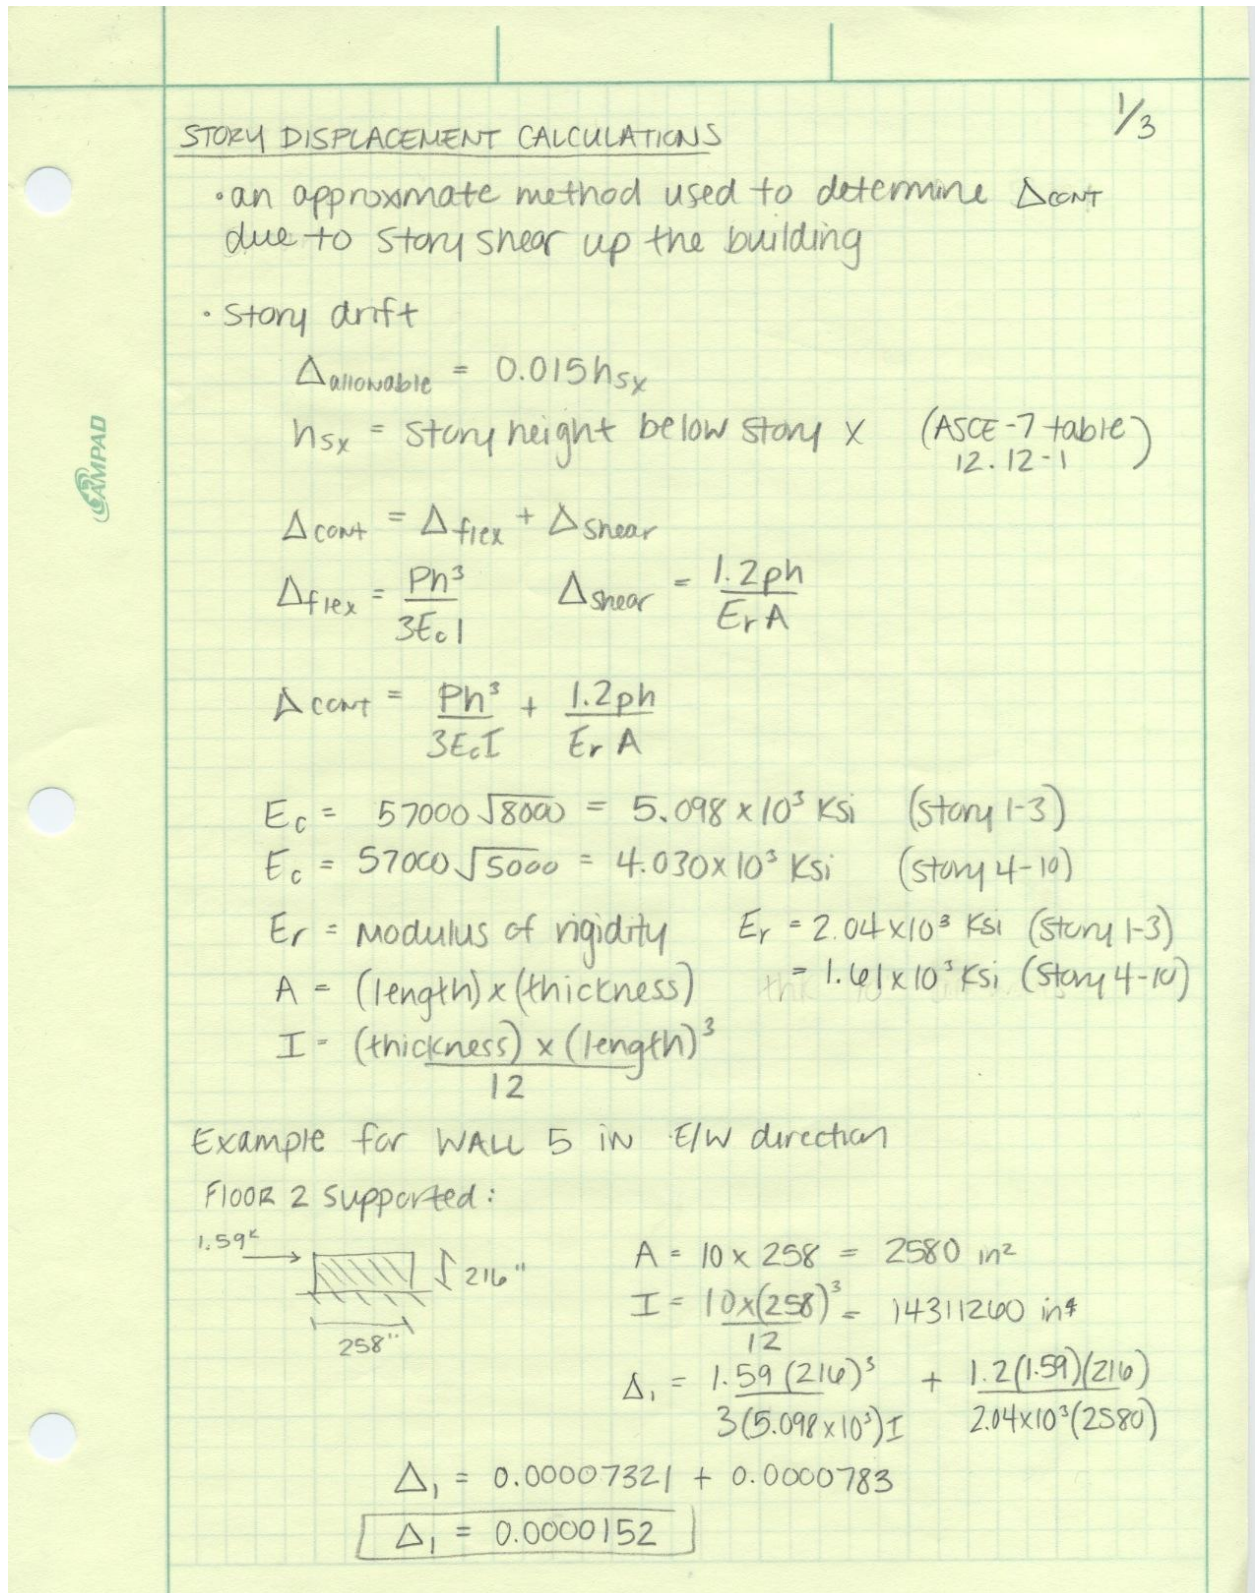 1/3
STORY DISPLACEMENT CALCULATIONS
• an approximate method used to determine ΔCONT
due to story shear up the building
• Story drift
Δallowable = 0.015hsx
hsx = Story height below story x (ASCE-7 table 12.12-1)
CAMPAD
Δcont = Δflex + Δshear
Δflex = Ph³/3EcI Δshear = 1.2ph/ErA
Δcont = Ph³/3EcI + 1.2ph/ErA
Ec = 57000√8000 = 5.098 x 10³ Ksi (Story 1-3)
Ec = 57000√5000 = 4.030 x 10³ Ksi (Story 4-10)
Er = Modulus of rigidity Er = 2.04x10³ Ksi (Story 1-3)
A = (length) x (thickness) = 1.61x10³ Ksi (Story 4-10)
I = (thickness) x (length)³/12
Example for WALL 5 IN E/W direction
FLOOR 2 Supported:
1.59ᵏ
216"
258"
A = 10 x 258 = 2580 in²
I = 10x(258)³/12 = 14311260 in⁴
Δ₁ = 1.59(216)³/3(5.098x10³)I + 1.2(1.59)(216)/2.04x10³(2580)
Δ₁ = 0.00007321 + 0.0000783
Δ₁ = 0.0000152